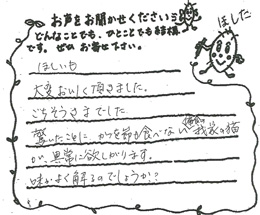 お声をお聞かせください
どんなことでも、ひとことでも結構
です。ぜひ お寄せ下さい。
ほした
ほしいも
大変おいしく頂きました。
ごちそうさまでした
驚いたことに、かつを節が食べない我家の猫
が、異常に欲しがります。
味がよく解るのでしょうか?